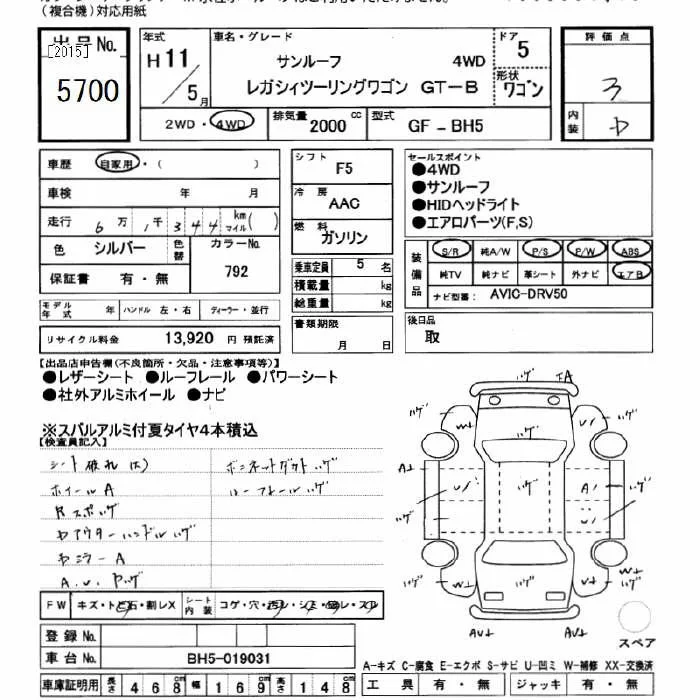 (複合機)対応用紙
出品No.
[2015]
5700
年式
H 11 / 5 月
車名・グレード
サンルーフ 4WD
レガシィツーリングワゴン GT-B
ドア 5
形状 ワゴン
評価点
3
内装
2WD・4WD
排気量 2000 cc
型式 GF-BH5
車歴 自家用・( )
車検 年 月
走行 6万 1千 3 4 4 km マイル( )
色 シルバー 色替 カラーNo. 792
保証書 有・無
モデル年式 年 ハンドル 左・右 ディーラー・並行
リサイクル料金 13,920 円 預託済
シフト F5
冷房 AAC
燃料 ガソリン
乗車定員 5 名
積載量 kg
総重量 kg
書類期限
月 日
セールスポイント
●4WD
●サンルーフ
●HIDヘッドライト
●エアロパーツ(F,S)
装備品 S/R 純A/W P/S P/W ABS
純TV 純ナビ 革シート 外ナビ エアB
ナビ型番: AVIC-DRV50
後日品
取
【出品店申告欄(不良箇所・欠品・注意事項等)】
●レザーシート ●ルーフレール ●パワーシート
●社外アルミホイール ●ナビ
※スバルアルミ付夏タイヤ4本積込
【検査員記入】
シート破れ(大) ボンネットダクトハゲ
ホイールA ルーフレールハゲ
Rスポハゲ
アウターハンドルハゲ
ミラーA
FW キズ・トビ石・割レX シート内装 コゲ・穴・汚レ・シミ・切レ・スレ
登録No.
車台No. BH5-019031
車庫証明用 長さ 468 幅 169 高さ 148
ハゲ A
ハゲ W ハゲ W ハゲ
A ハゲ
ハゲ
ハゲ
ハゲ W
W
スペア
A-キズ C-腐食 E-エクボ S-サビ U-凹ミ W-補修 XX-交換済
工具 有・無 ジャッキ 有・無